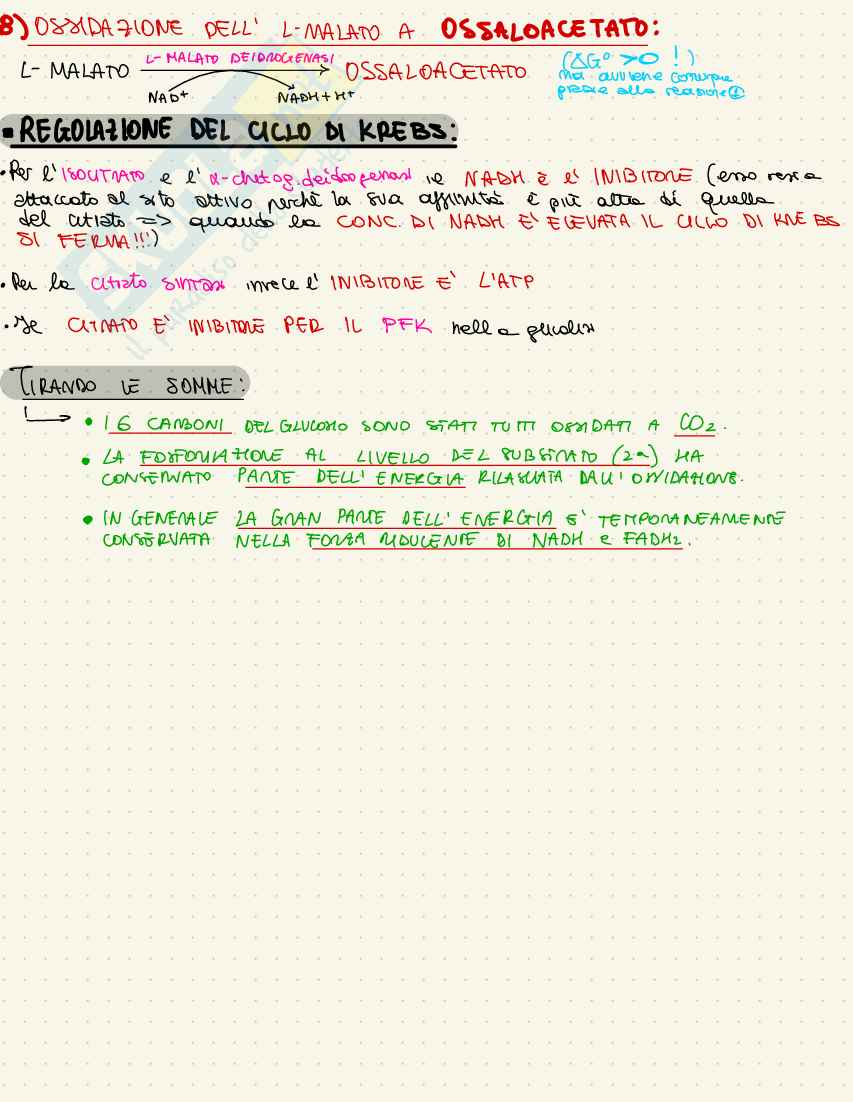 8) OSSIDAZIONE DELL' L-MALATO A OSSALOACETATO:
L-MALATO L-MALATO DEIDROGENASI OSSALOACETATO (ΔG° >0 !)
ma avviene comunque
NAD+ NADH+H+ grazie alla reazione ①
▪ REGOLAZIONE DEL CICLO DI KREBS:
• Per l'ISOCITRATO e l' α-chetog.deidrogenasi il NADH è l' INIBITORE (esso resta
attaccato al sito attivo perché la sua affinità è più alta di quella
del citrato => quando la CONC. DI NADH E' ELEVATA IL CICLO DI KREBS
SI FERMA!!!)
• Per la citrato sintasi invece l' INIBITORE E' L'ATP
• Il CITRATO E' INIBITORE PER IL PFK nella glicolisi
TIRANDO LE SOMME:
• I 6 CARBONI DEL GLUCOSIO SONO STATI TUTTI OSSIDATI A CO2.
• LA FOSFORILAZIONE AL LIVELLO DEL SUBSTRATO (2a) HA
CONSERVATO PARTE DELL' ENERGIA RILASCIATA DALL' OSSIDAZIONE.
• IN GENERALE LA GRAN PARTE DELL' ENERGIA E' TEMPORANEAMENTE
CONSERVATA NELLA FORZA RIDUCENTE DI NADH e FADH2.